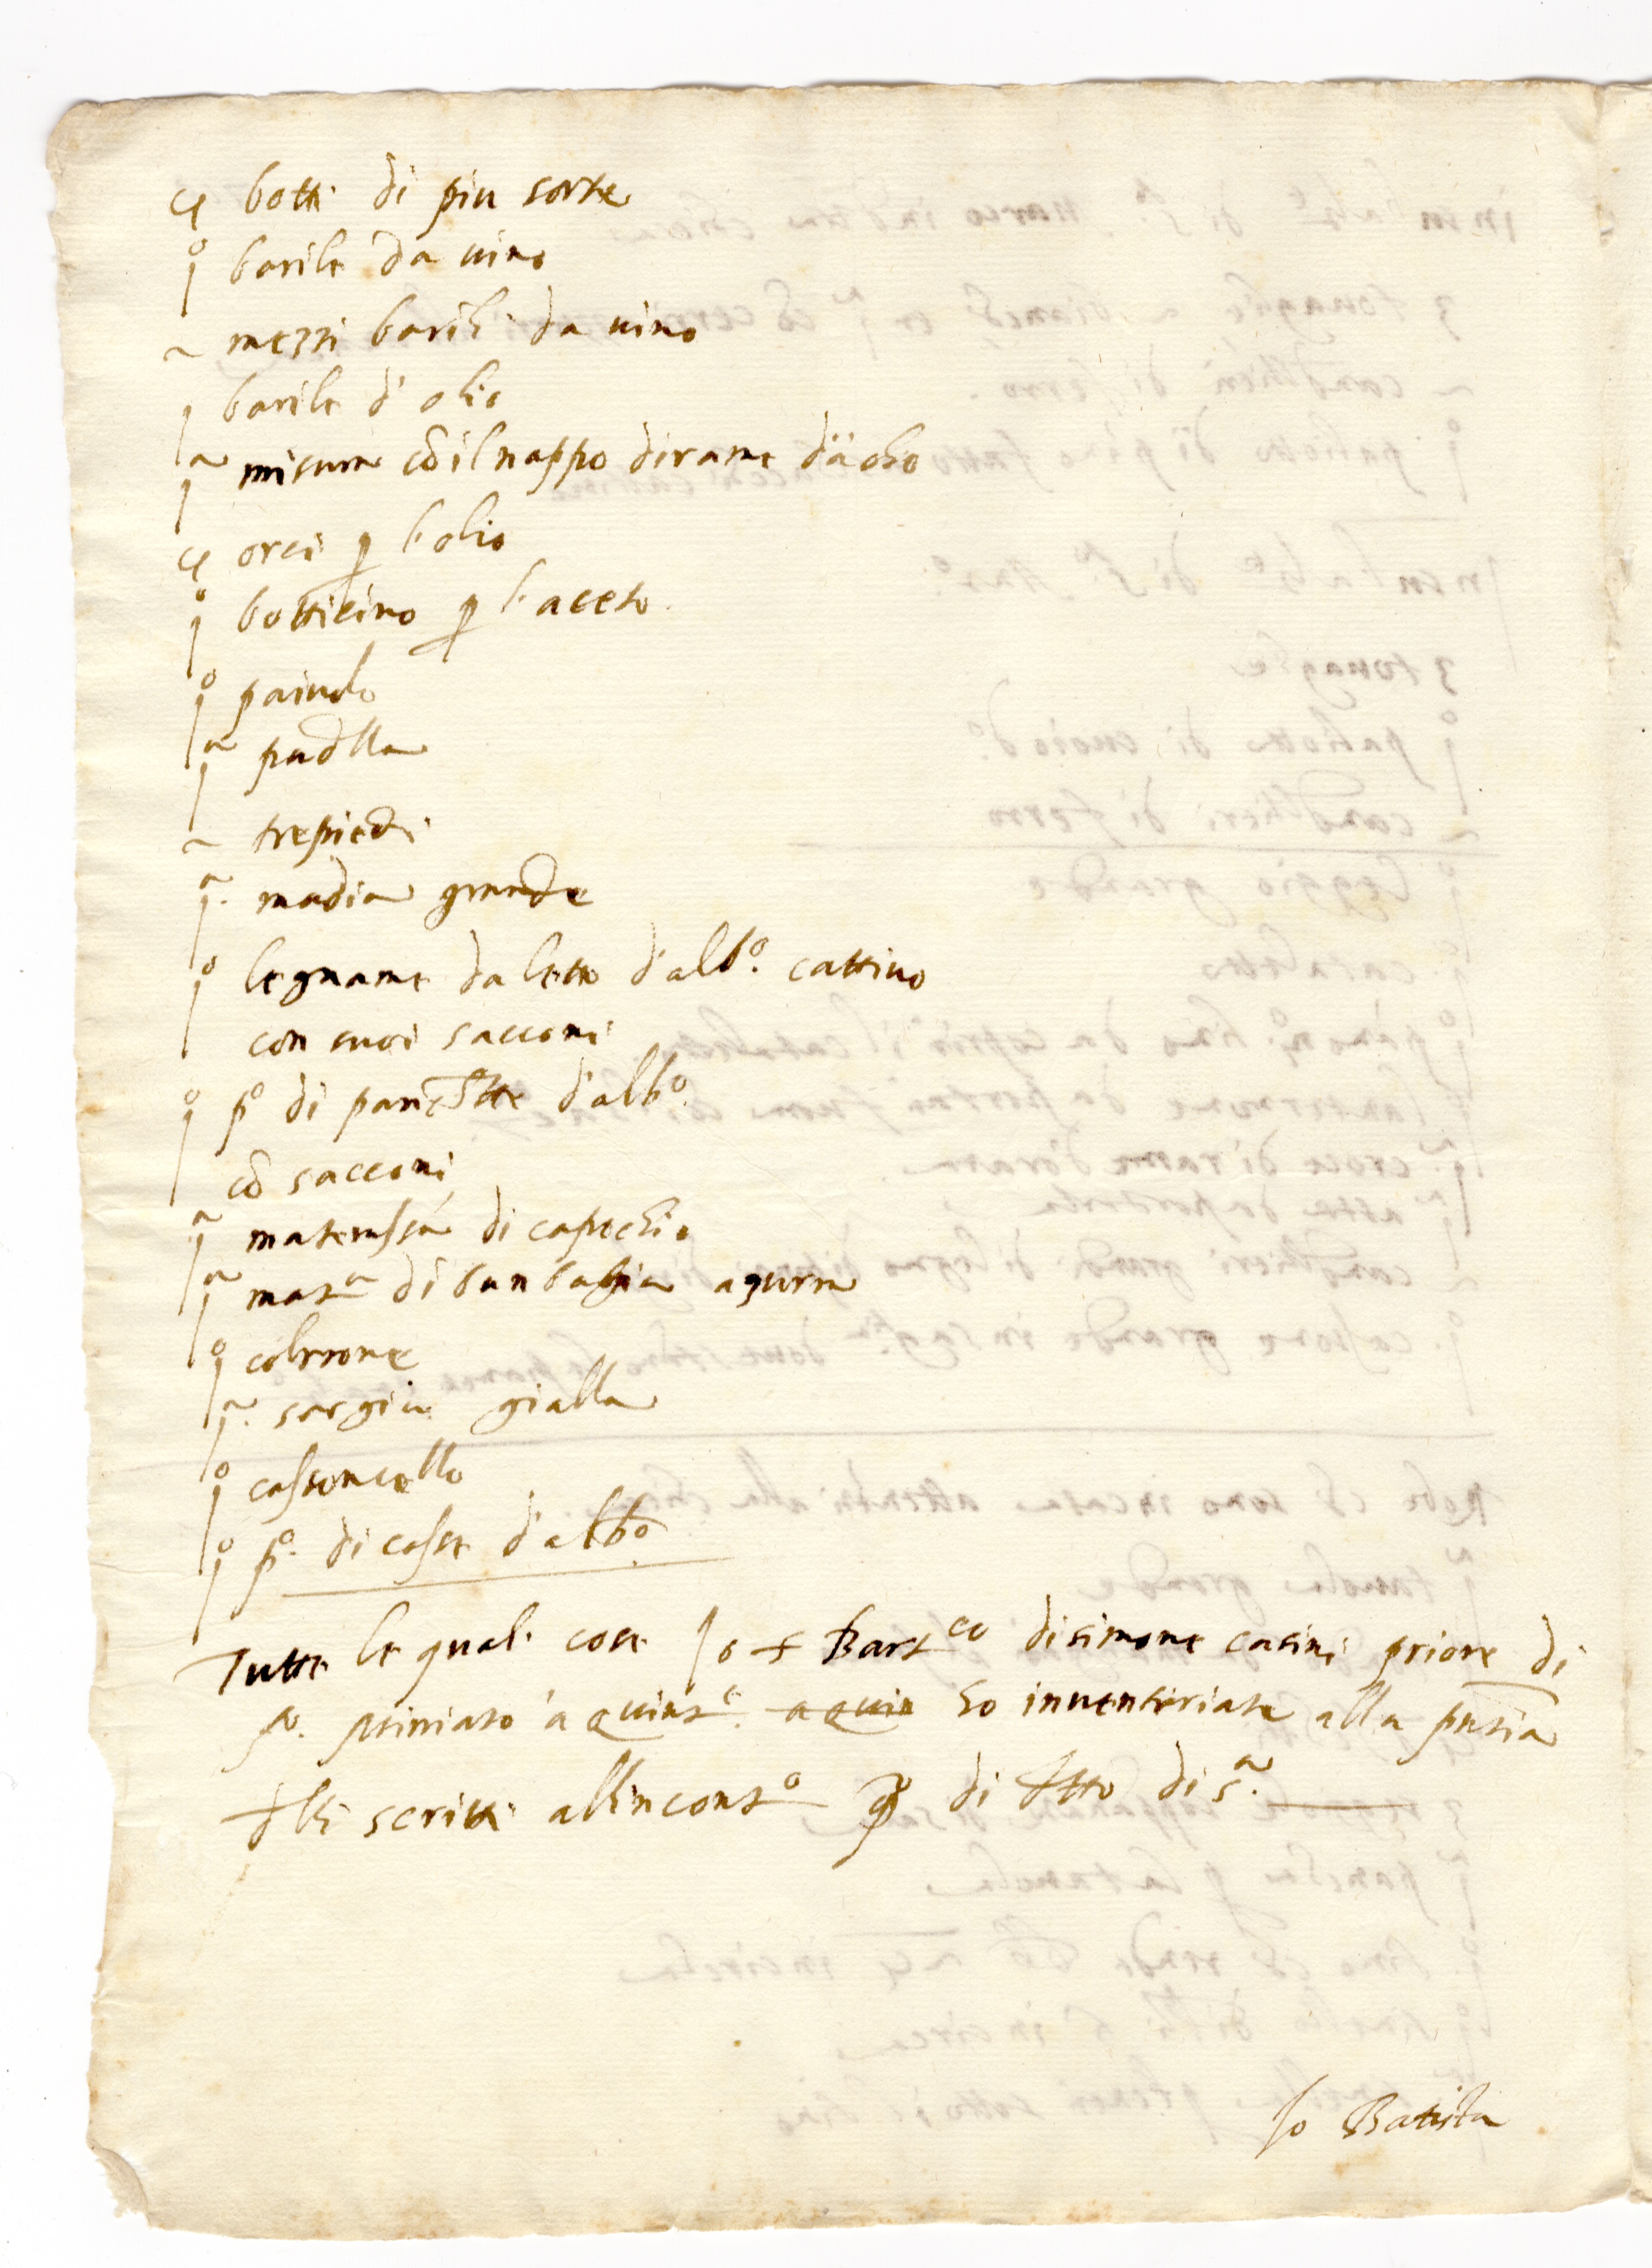 4 botti di piu sorte
jº barile da vino
2 mezzi barili da vino
1 barile d' olio
jª misura cō il nappo di rame da olio
4 orci p l olio
jº botticino p l aceto.
jº paiuolo
jª padella
2 trepiedi
jª. madia grande
jº legname da letto d'albº. cattivo
con suoi sacconi
jº pº di panchette d'albº.
cō sacconi
jª materassa di capechio
jª matª di banbagia azurra
jº coltrone
jª. sargia gialla
jº cassoncello
jº pº. di casse d'albº
Tutte le quali cose Io f Bartᶜᵒ di simone casini priore di
ho inventariate alla
scritti all incontº di di sª.
Io Batista